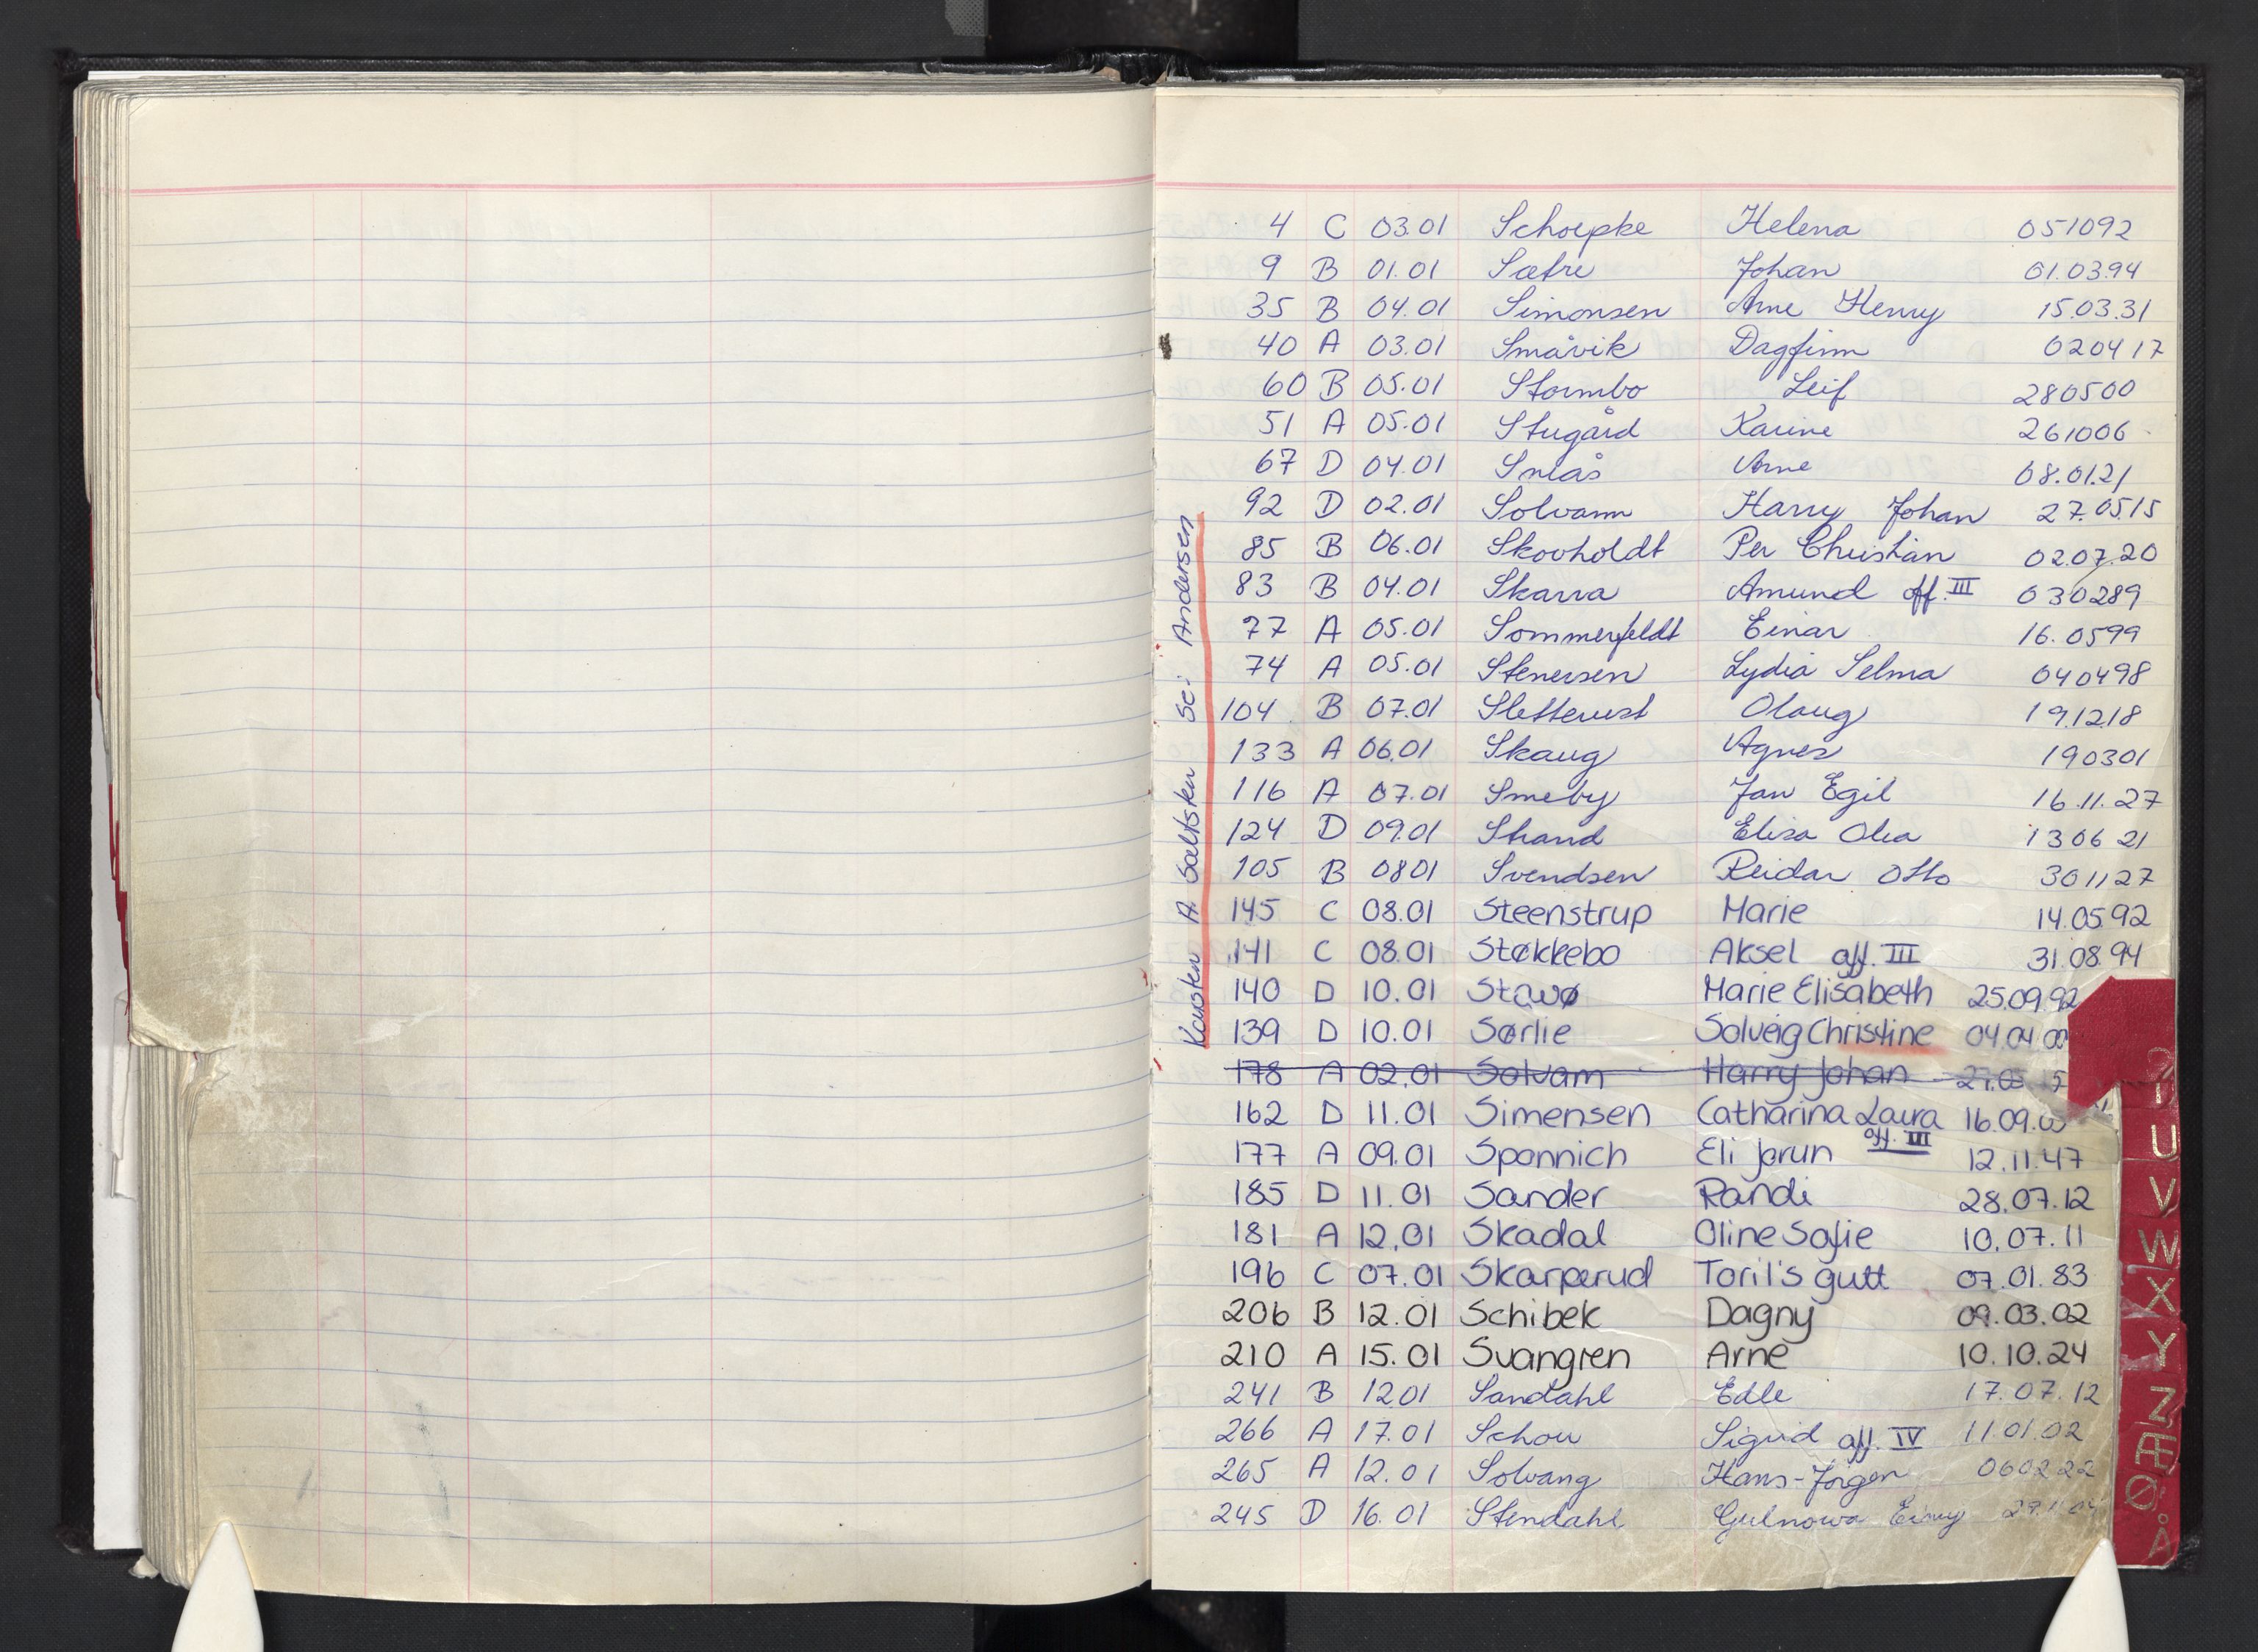 4 C 03.01 Schoepke Helena 051092
9 B 01.01 Sætre Johan 01.03.94
35 B 04.01 Simonsen Arne Henry 15.03.31
40 A 03.01 Småvik Dagfinn 020417
60 B 05.01 Stormbo Leif 280500
51 A 05.01 Stugård Karine 261006
67 D 04.01 Snlås Arne 08.01.21
92 D 02.01 Solvann Harry Johan 27.05.15
85 B 06.01 Skovholdt Per Christian 02.07.20
83 B 04.01 Skarra Amund off. III 030289
77 A 05.01 Sommerfeldt Einar 16.0599
74 A 05.01 Stenersen Lydia Selma 040498
104 B 07.01 Sletterust Olaug 19.12.18
133 A 06.01 Skaug Agnes 190301
116 A 07.01 Smeby Jan Egil 16.11.27
124 D 09.01 Strand Elisa Olea 130621
105 B 0801 Svendsen Reidar Otto 301127
145 C 08.01 Steenstrup Marie 14.05.92
141 C 08.01 Støkkebo Aksel off. III 31.08.94
140 D 10.01 Stavø Marie Elisabeth 25.09.92
139 D 10.01 Sørlie Solveig Christine 04.04.00
178 A 02.01 Solvam Harry Johan
162 D 11.01 Simensen Catharina Laura 16.09.
177 A 09.01 Spannich Eli Jorun off. III 12.11.47
185 D 11.01 Sander Randi 28.07.12
181 A 12.01 Skadal Oline Sofie 10.07.11
196 C 07.01 Skarperud Toril's gutt 07.01.83
206 B 12.01 Schibek Dagny 09.03.02
210 A 15.01 Svangren Arne 10.10.24
241 B 1201 Sandahl Edle 17.07.12
266 A 17.01 Schou Sigrid off. IV 11.01.02
265 A 12.01 Solvang Hans-Jørgen 060222
245 D 16.01 Stendahl Gulnowa
Karsten A. Saltsten se: Andersen
U
V
W
X
Y
Z
Æ
Ø
Å